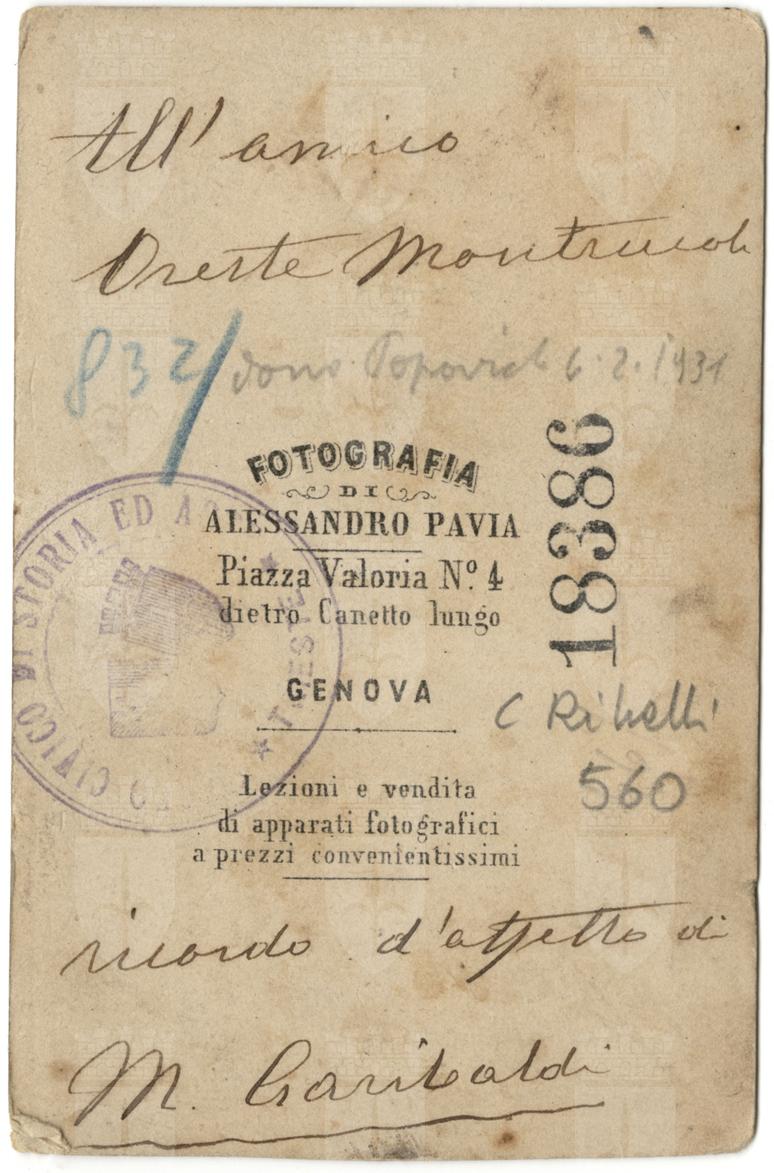 All' amico
Oreste
832/ dono Popovich 6.2.1931
FOTOGRAFIA
DI
ALESSANDRO PAVIA
Piazza Valoria Nº. 4
dietro Canetto lungo
GENOVA
Lezioni e vendita
di apparati fotografici
a prezzi convenientissimi
18386
CIVICO DI STORIA ED TRIESTE
C Ribelli
560
ricordo d'affetto di
M. Garibaldi